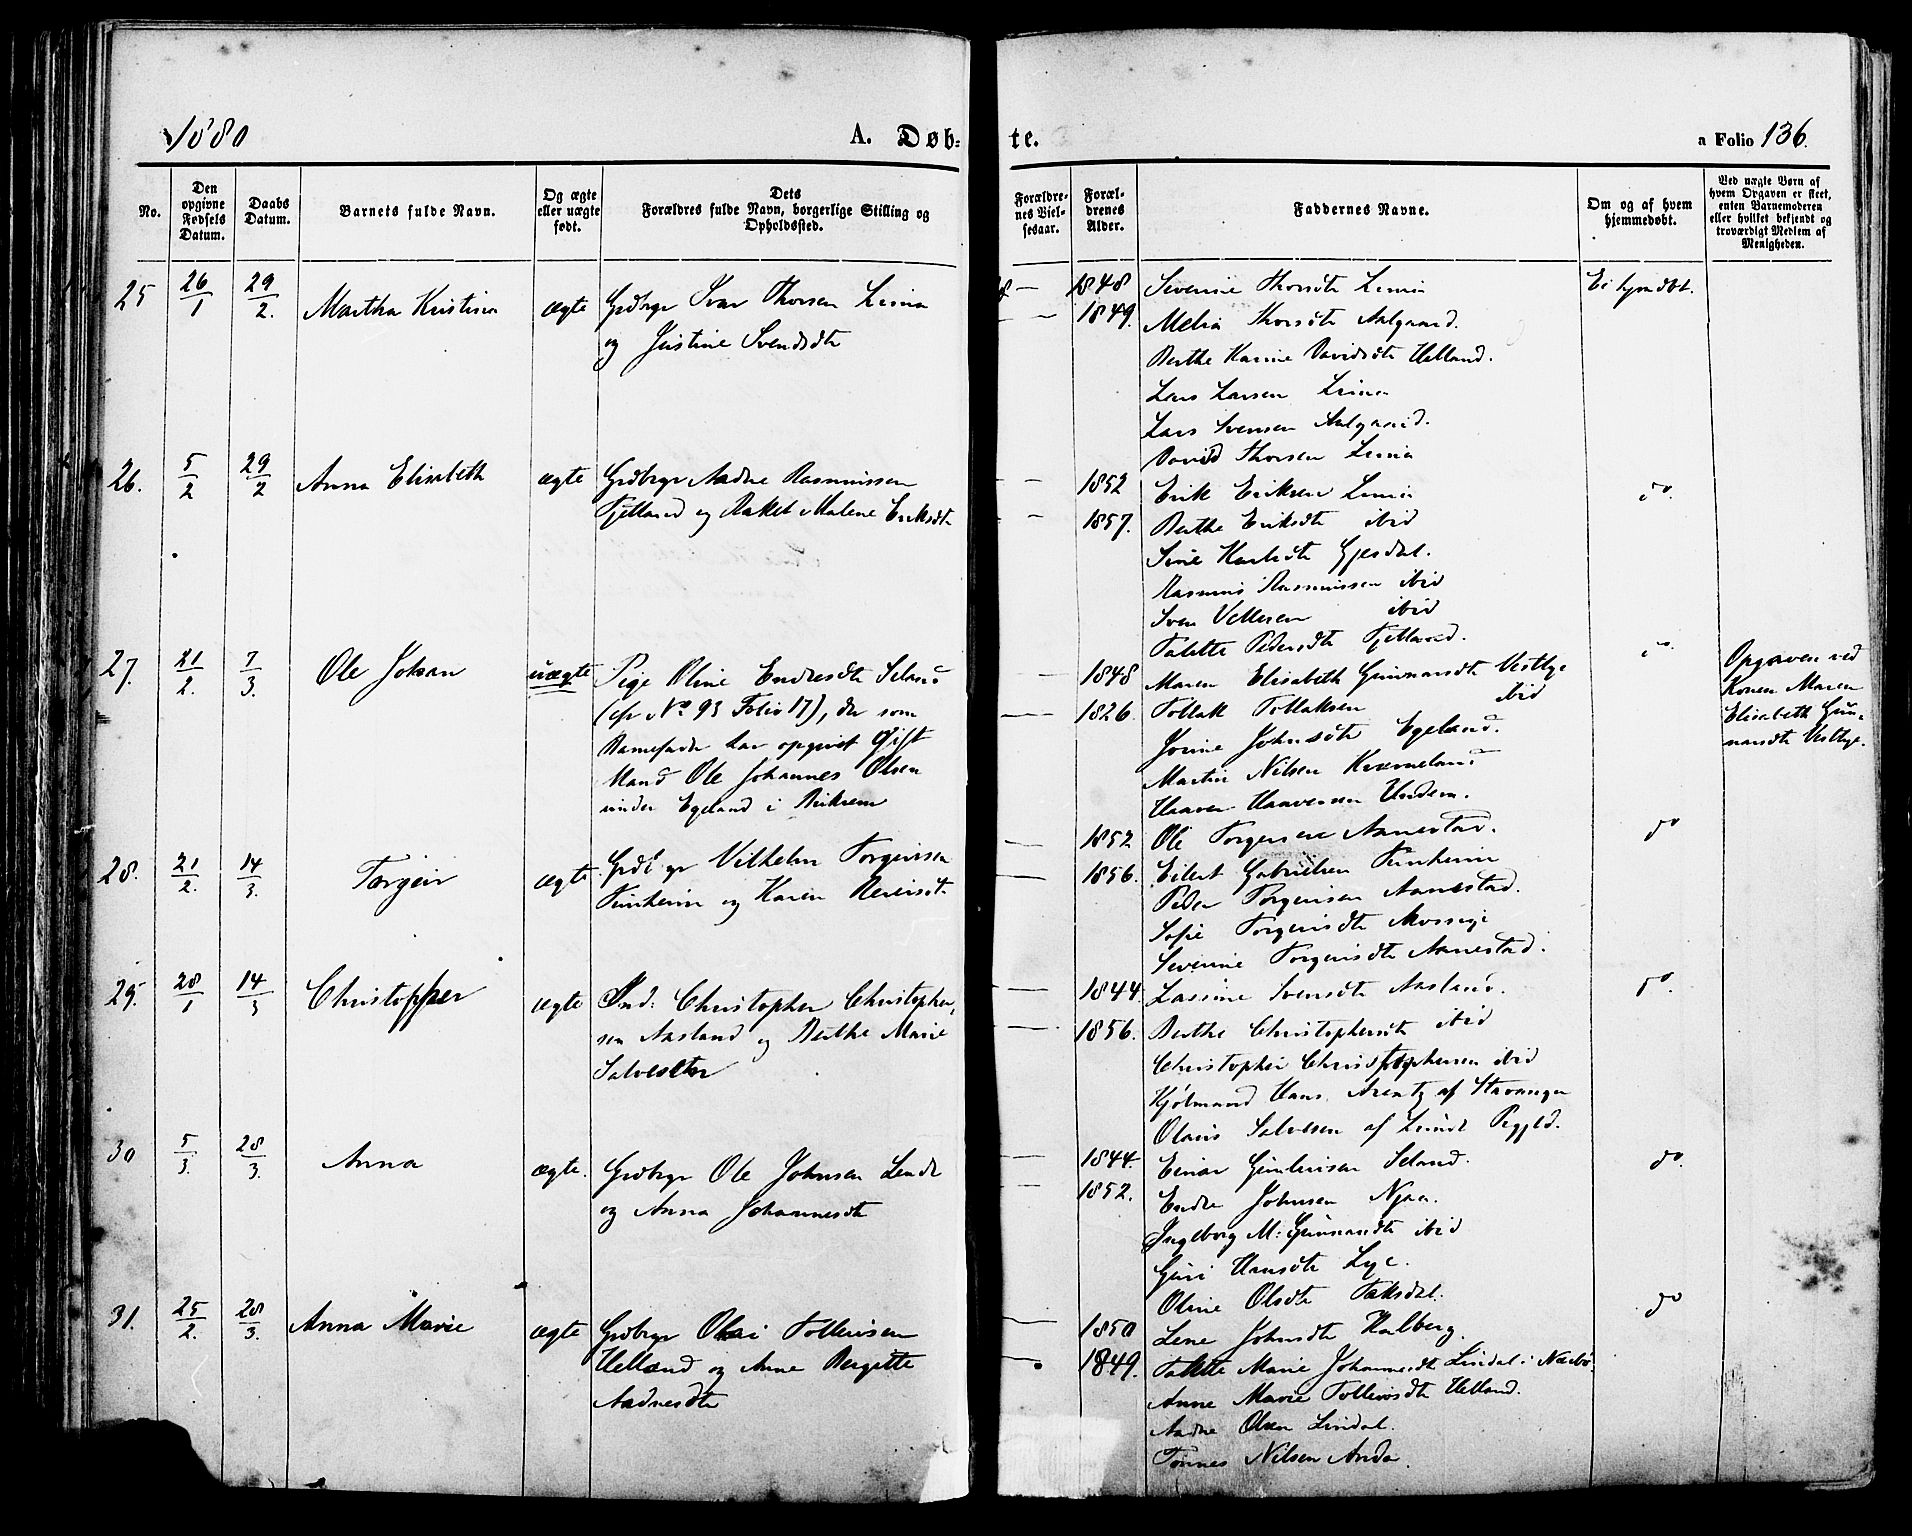 1880
A. Døb-
te.
a Folio 136.
No.
Den opgivne Fødsels Datum.
Daabs Datum.
Barnets fulde Navn.
Og ægte eller uægte født.
Dets Forældres fulde Navn, borgerlige Stilling og Opholdssted.
Forældrenes Vielsesaar.
Forældrenes Alder.
Faddernes Navne.
Om og af hvem hjemmedøbt.
Ved uægte Børn af hvem Opgaven er skeet, enten Barnemoderen eller hvilket bekjendt og troværdigt Medlem af Menigheden.
25 26/1 29/2. Martha Kristine ægte Grdbrgr Svar Thorsen Lima
og Justine Svendsdt
1848 Severine Thorsdt Lima Ei hjmdbt.
1849. Melia Thorsdt Aalgaard.
Berthe Karine Davidsdt Helland.
Lars Larsen Lima
Lars Svensen Aalgaard.
David Thorsen Lima
26. 5/2 29/2 Anna Elisabeth ægte Grdbrgr Aadne Rasmussen
Fjelland og Rakel Malene Eriksdt
1852 Erik Eriksen Lima do.
1857. Berthe Eriksdt ibid
Sine Karlsdt Gjesdal.
Rasmus Rasmussen ibid
Sven Vellesen ibid
Talette Pedersdt Fjelland.
27. 21/2. 7/3. Ole Johan uægte Pige Oline Endresdt Seland
(cfr No 93 Folio 17), der som
Barnefader har opgivet Gift
Mand Ole Johannes Olsen
under Egeland i Birkrem
1848 Maren Elisabeth Gunnarsdt Vestlye do
1826. Tollak Tollaksen ibid
Jorine Johnsdt Egeland.
Martin Nilsen Kverneland
Haaver Haaversen Undem.
Opgaven ved
Konen Maren
Elisabeth Gun-
narsdt Vestlye.
28. 21/2. 14/3. Torgeir ægte. Grdbrgr Vilhelm Torgersen
Tunheim og Karen Reiersdt.
1852 Ole Torgersen Aanestad. do
1856. Eilert Gabrielsen Tunheim
Peder Torgersen Aanestad.
Sofie Torgersdt Mossige
Severine Torgersdt Aanestad.
29. 28/1 14/3 Christopher ægte Ind: Christopher Christopher-
sen Aasland og Berthe Marie
Salvesdtr
1844 Lassine Svensdt Aasland. do.
1856. Berthe Christophersdt ibid
Christopher Christophersen ibid
Kjøbmand Hans Arentz af Stavanger
Olaus Salvesen af Lunde Pgjld.
30 5/3. 28/3. Anna ægte. Grdbrgr Ole Johnsen Lende
og Anna Johannesdt
1844. Einar Gunlersen Seland. do.
1852. Endre Johnsen Njaa.
Ingeborg M: Gunnarsdt ibid
Guri Hansdt Lye.
Oline Olsdt Taksdal.
31. 25/2. 28/3. Anna Marie ægte Grdbrgr Olai Tollevsen
Helland og Anne Bergitte
Aadnesdt
1850 Lene Johnsdt Kalberg. do
1849. Talette Marie Johannesdt Lindal i Nærbø.
Anne Marie Tollevsdt Helland.
Aadne Olsen Lindal.
Tønnes Nilsen Anda.